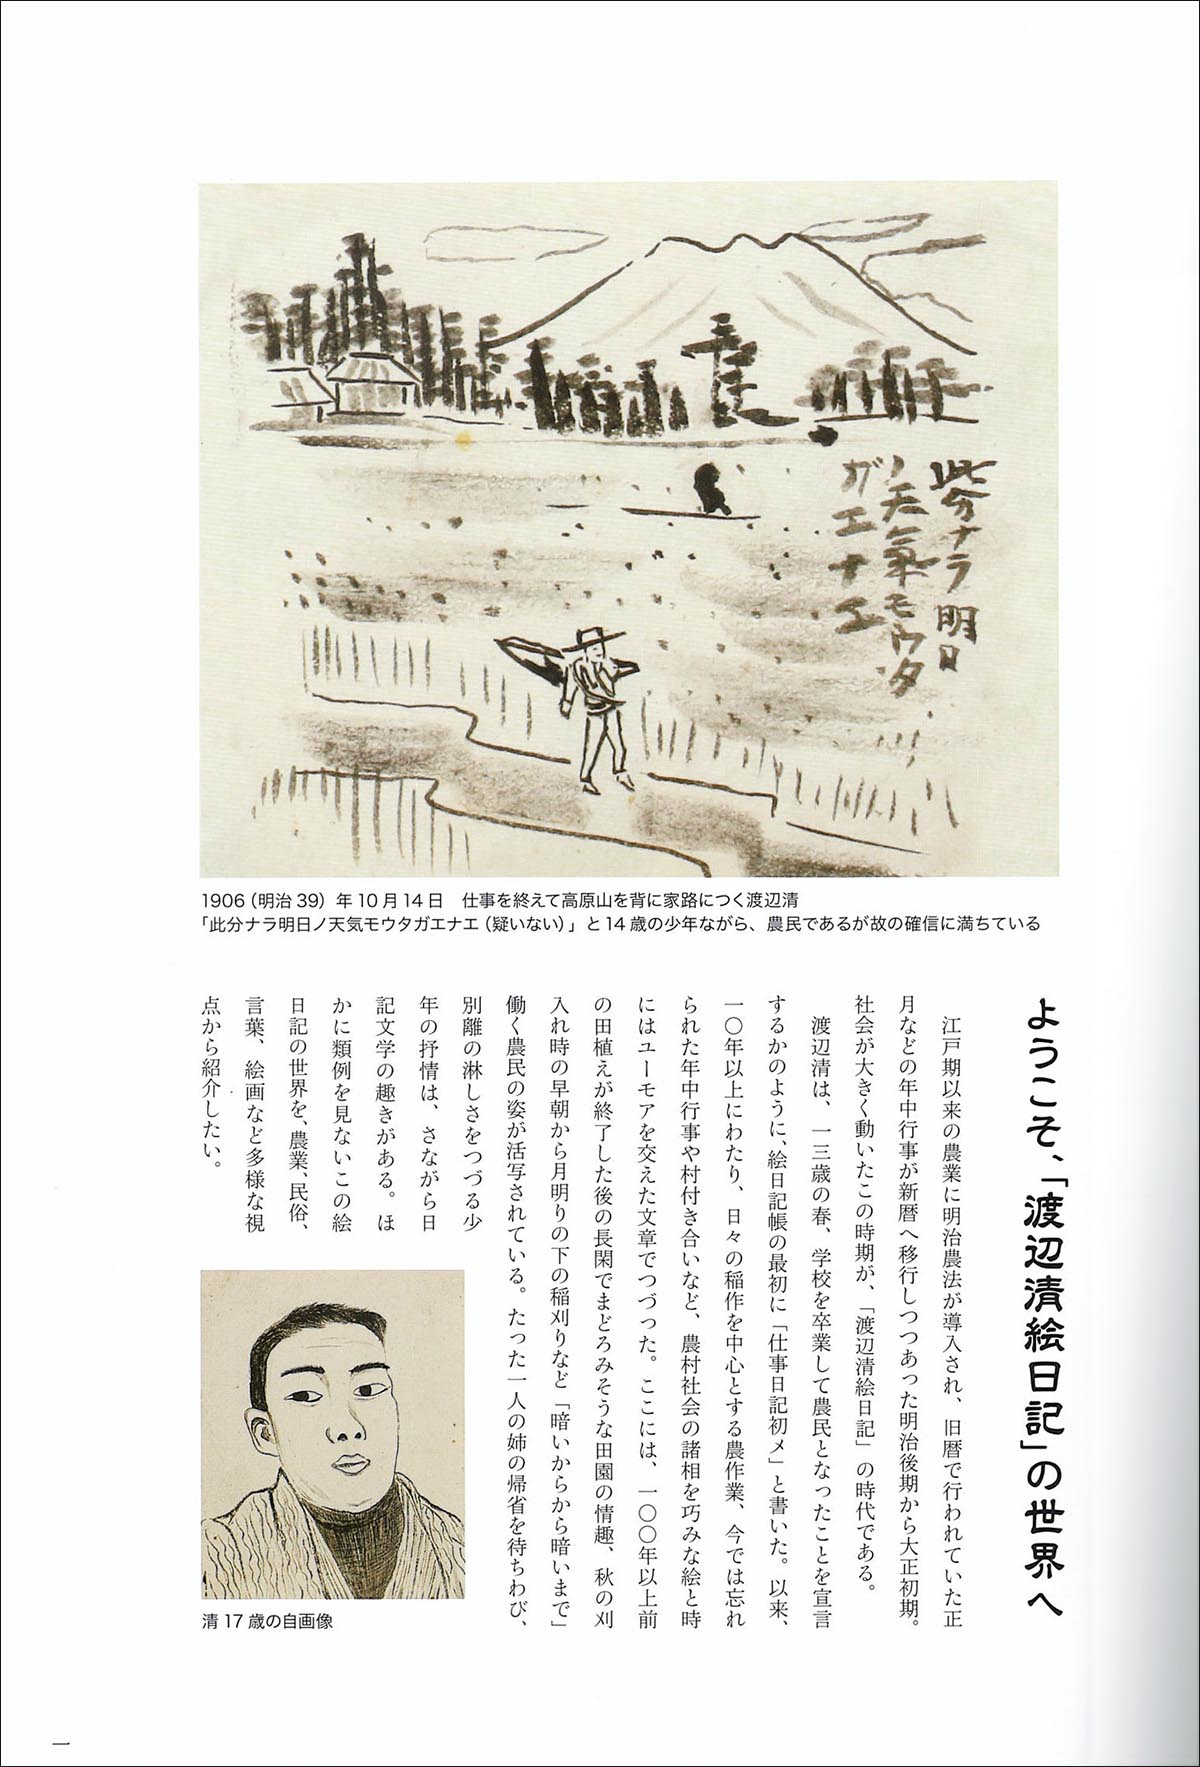 此分ナラ明日
ノ天氣モウタ
ガエナエ
1906（明治39）年10月14日　仕事を終えて高原山を背に家路につく渡辺清
「此分ナラ明日ノ天気モウタガエナエ（疑いない）」と14歳の少年ながら、農民であるが故の確信に満ちている
ようこそ、「渡辺清絵日記」の世界へ
江戸期以来の農業に明治農法が導入され、旧暦で行われていた正
月などの年中行事が新暦へ移行しつつあった明治後期から大正初期。
社会が大きく動いたこの時期が、「渡辺清絵日記」の時代である。
渡辺清は、一三歳の春、学校を卒業して農民となったことを宣言
するかのように、絵日記帳の最初に「仕事日記初メ」と書いた。以来、
一〇年以上にわたり、日々の稲作を中心とする農作業、今では忘れ
られた年中行事や村付き合いなど、農村社会の諸相を巧みな絵と時
にはユーモアを交えた文章でつづった。ここには、一〇〇年以上前
の田植えが終了した後の長閑でまどろみそうな田園の情趣、秋の刈
入れ時の早朝から月明りの下の稲刈りなど「暗いからから暗いまで」
働く農民の姿が活写されている。たった一人の姉の帰省を待ちわび、
別離の淋しさをつづる少
年の抒情は、さながら日
記文学の趣きがある。ほ
かに類例を見ないこの絵
日記の世界を、農業、民俗、
言葉、絵画など多様な視
点から紹介したい。
清17歳の自画像
一